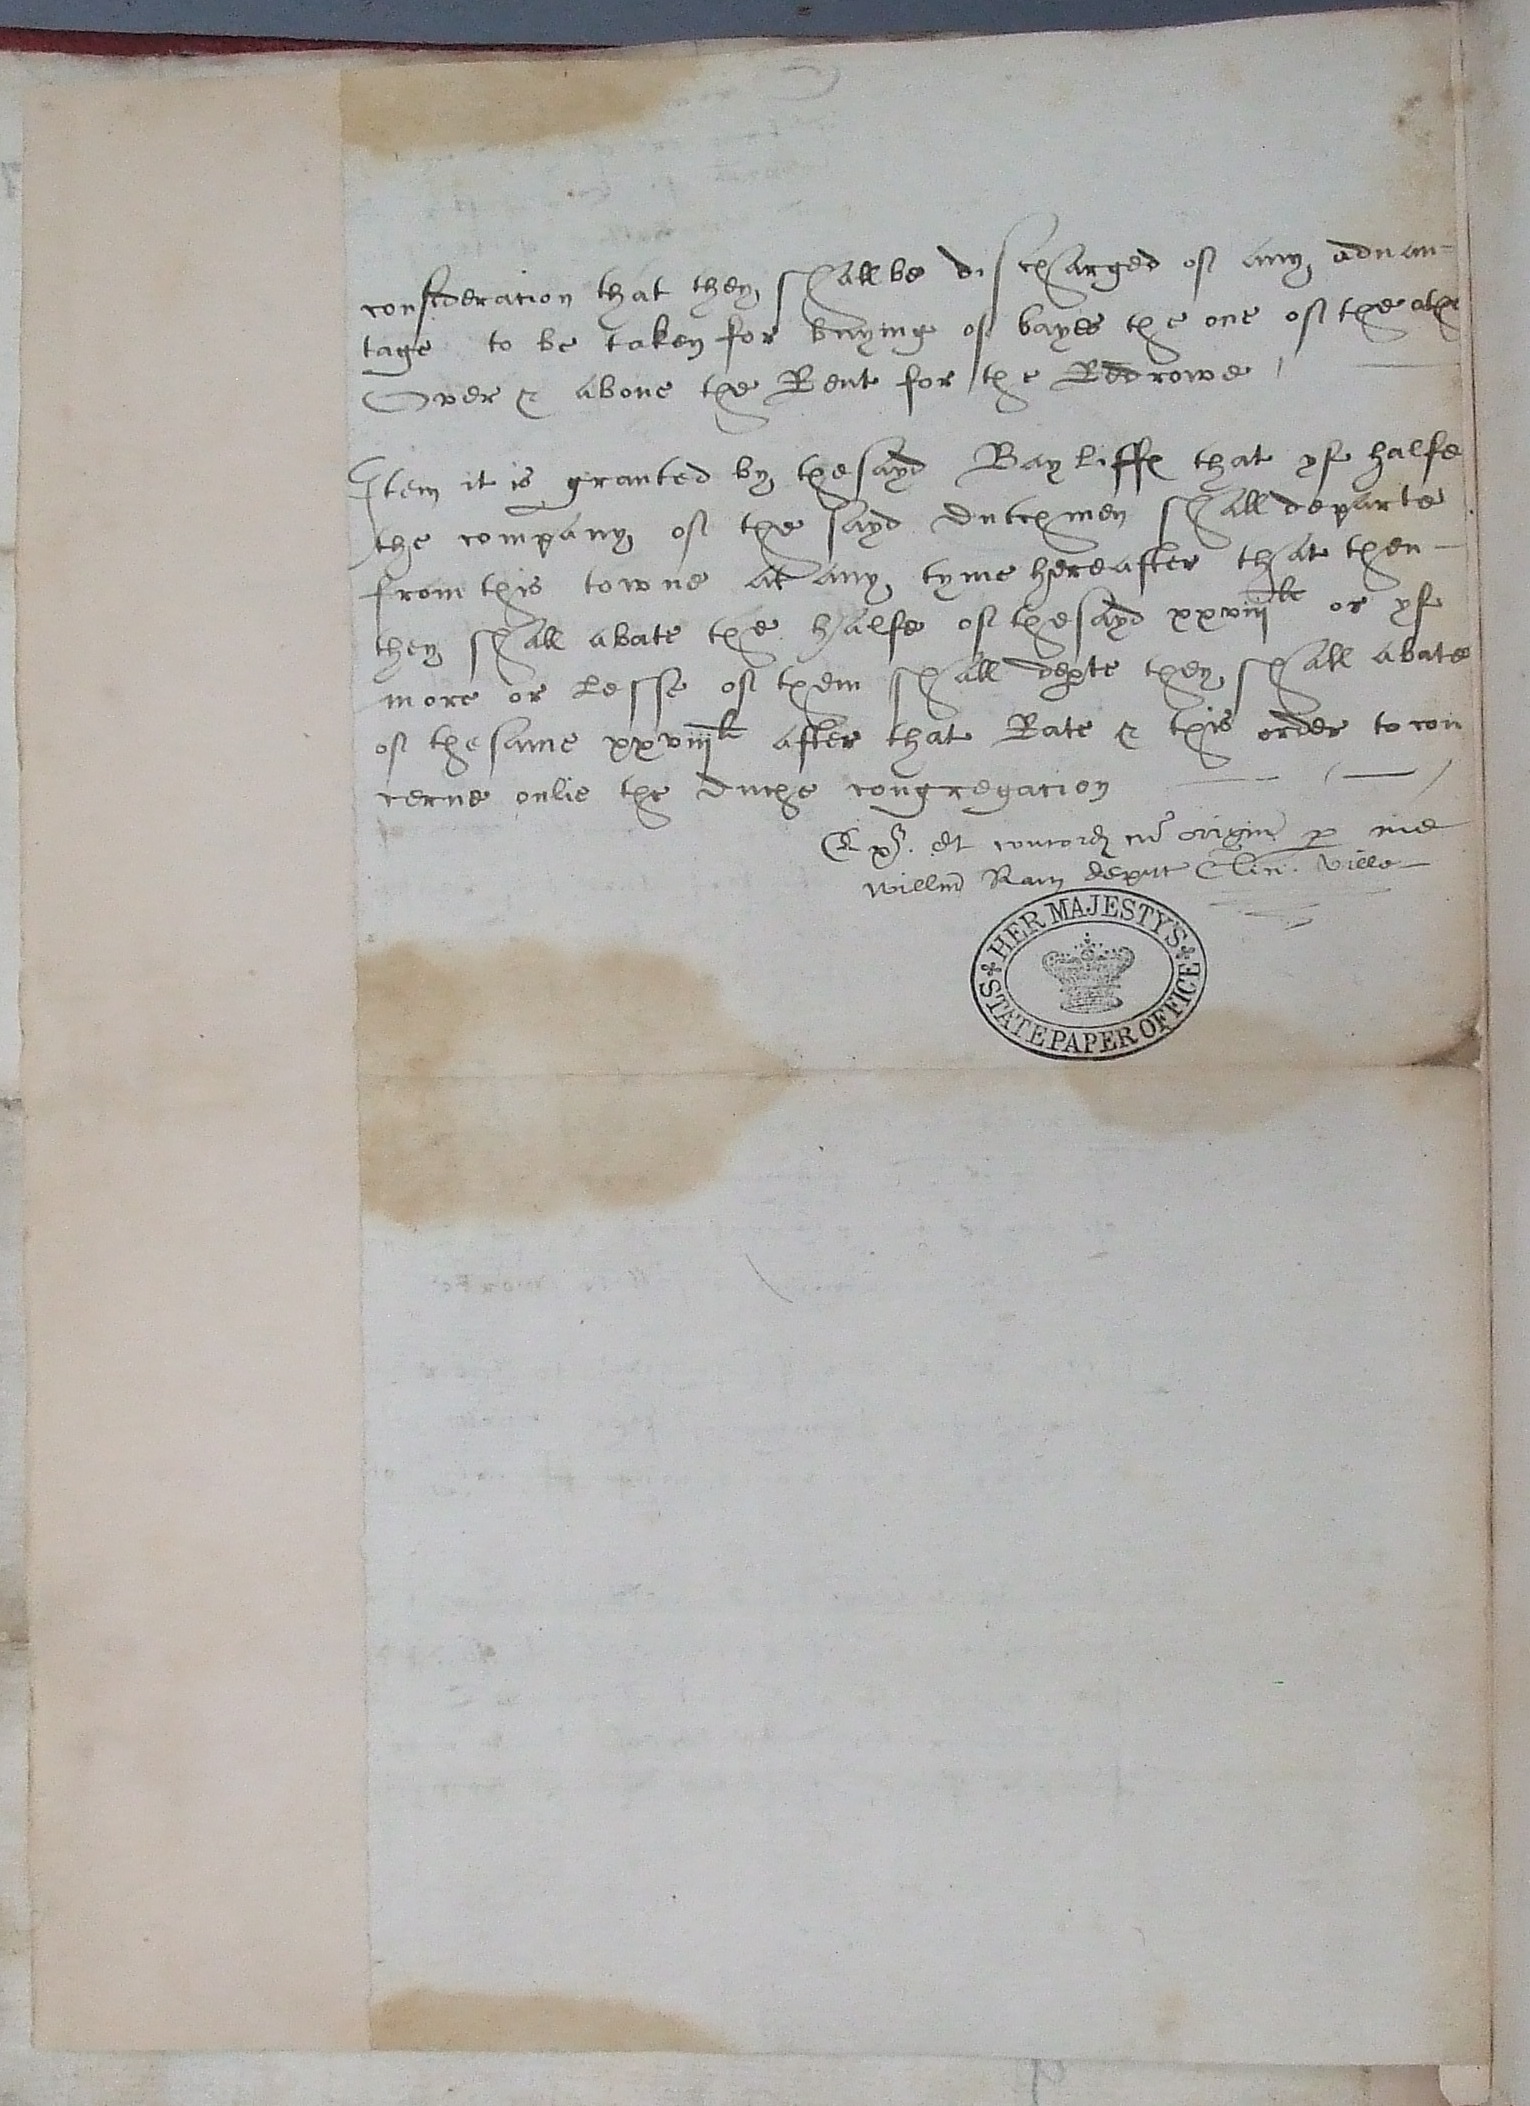 consideracion that they shall be discharged of any aduan-
tage to be taken for buying of bayes the one of the othr
Over & aboue the Rent for the Redrowe
Item it is granted by the sayd Bayliffs that yf halfe
the company of the sayd dutchmen shall departe
from this towne at any tyme hereafter that then
they shall abate the halfe of the sayd xxviijli or yf
more or lesse of them shall depte they shall abate
of the same xxviijli after that Rate & this order to con
cerne onlie the duche congregacion
Exr. et concord cu origin p me
Willm Ram deput Clic. ville
HER MAJESTY'S
STATE PAPER OFFICE